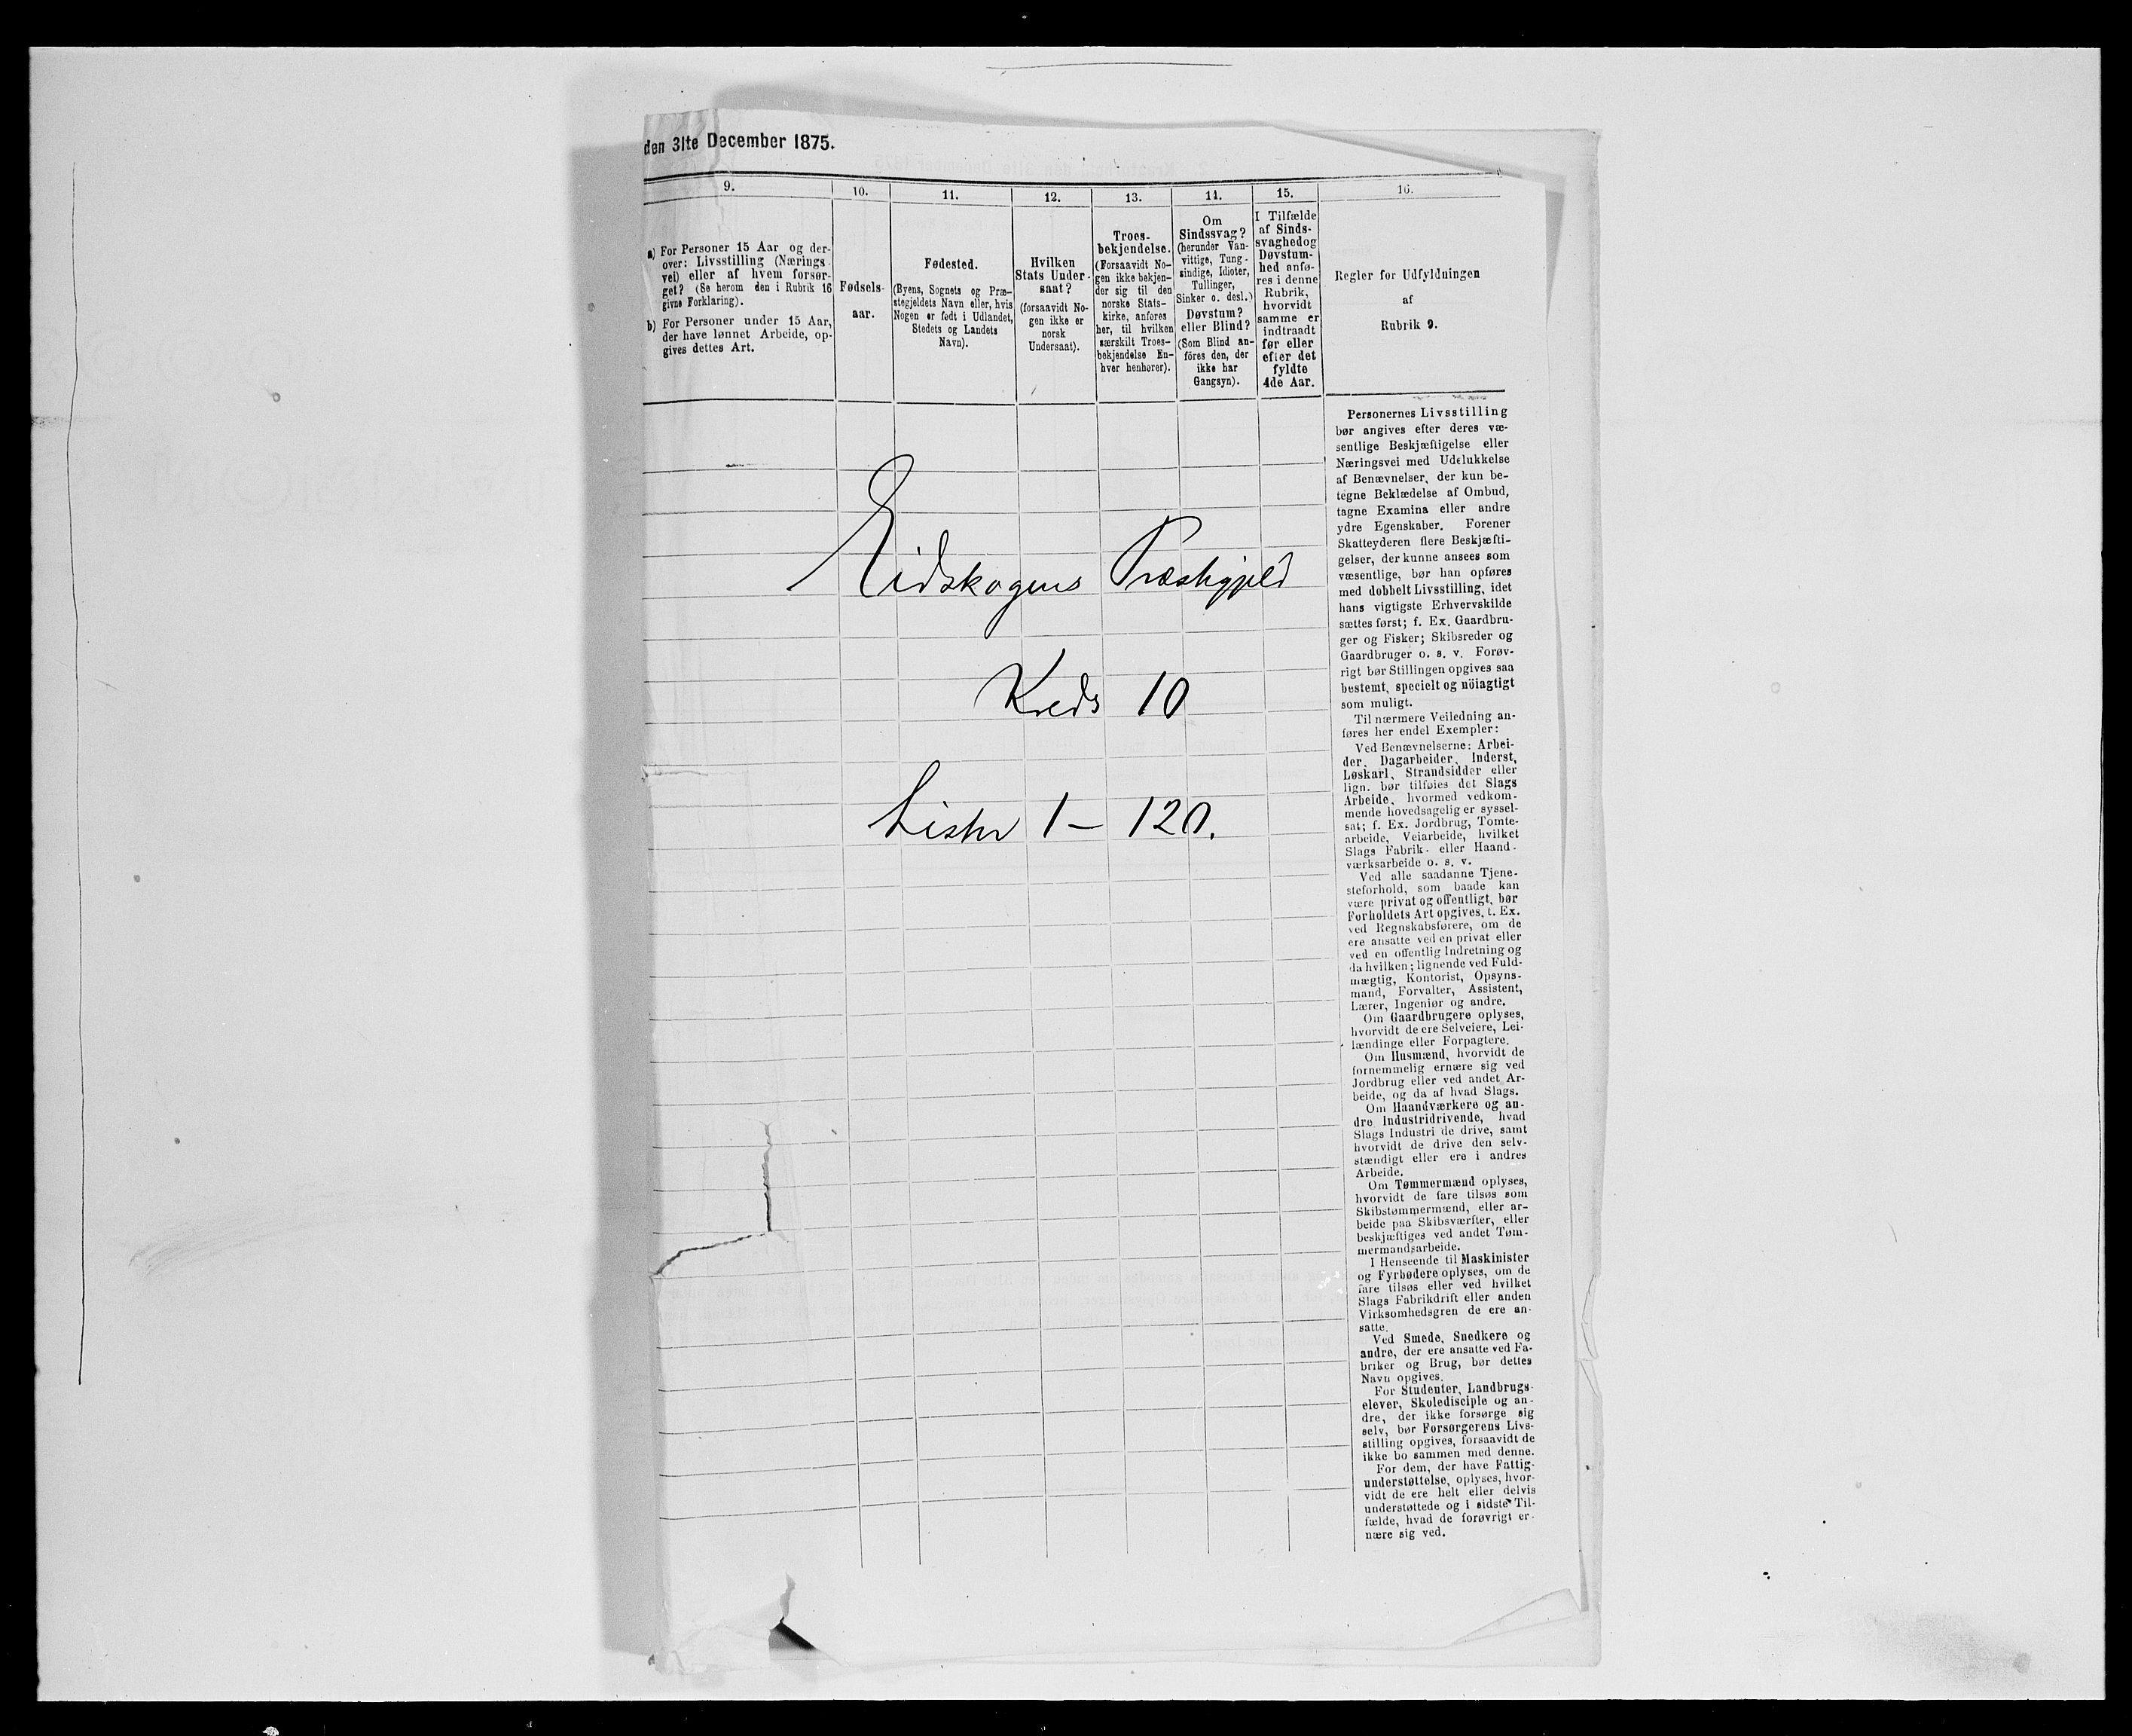 den 31te December 1875.
9.
10.
11.
12.
13.
14.
15.
16.
a) For Personer 15 Aar og der-
over: Livsstilling (Nærings-
vei) eller af hvem forsør-
get? (Se herom den i Rubrik 16
givne Forklaring).
b) For Personer under 15 Aar,
der have lønnet Arbeide, op-
gives dettes Art.
Fødsels-
aar.
Fødested.
(Byens, Sognets og Præ-
stegjeldets Navn eller, hvis
Nogen er født i Udlandet,
Stedets og Landets
Navn).
Hvilken
Stats Under-
saat?
(forsaavidt No-
gen ikke er
norsk
Undersaat).
Troes-
bekjendelse.
(Forsaavidt No-
gen ikke bekjen-
der sig til den
norske Stats-
kirke, anføres
her, til hvilken
særskilt Troes-
bekjendelse En-
hver henhører).
Om
Sindssvag?
(herunder Van-
vittige, Tung-
sindige, Idioter,
Tullinger,
Sinker o. desl.)
Døvstum?
eller Blind?
(Som Blind an-
föres den, der
ikke har
Gangsyn).
I Tilfælde
af Sinds-
svaghed og
Døvstum-
hed anfø-
res i denne
Rubrik,
hvorvidt
samme er
indtraadt
før eller
efter det
fyldte
4de Aar.
Regler for Udfyldningen
af
Rubrik 9.
Eidskogens Præstegjeld
Kreds 10
Lister 1 – 120.
Personernes Livsstilling
bør angives efter deres væ-
sentlige Beskjæftigelse eller
Næringsvei med Udelukkelse
af Benævnelser, der kun be-
tegne Beklædelse af Ombud,
tagne Examina eller andre
ydre Egenskaber. Forener
Skatteyderen flere Beskjæfti-
gelser, der kunne ansees som
væsentlige, bør han opføres
med dobbelt Livsstilling, idet
hans vigtigste Erhvervskilde
sættes først; f. Ex. Gaardbru-
ger og Fisker; Skibsreder og
Gaardbruger o. s. v. Forøv-
rigt bør Stillingen opgives saa
bestemt, specielt og nöiagtigt
som muligt.
Til nærmere Veiledning an-
føres her endel Exempler:
Ved Benævnelserne: Arbei-
der, Dagarbeider, Inderst,
Løskarl, Strandsidder eller
lign. bør tilføies det Slags
Arbeide, hvormed vedkom-
mende hovedsagelig er syssel-
sat; f. Ex. Jordbrug, Tomte-
arbeide, Veiarbeide, hvilket
Slags Fabrik- eller Haand-
værksarbeide o. s. v.
Ved alle saadanne Tjene-
steforhold, som baade kan
være privat og offentligt, bør
Forholdets Art opgives, t. Ex.
ved Regnskabsførere, om de
ere ansatte ved en privat eller
ved en offentlig Indretning og
da hvilken; lignende ved Fuld-
mægtig, Kontorist, Opsyns-
mand, Forvalter, Assistent,
Lærer, Ingeniør og andre.
Om Gaardbrugere oplyses,
hvorvidt de ere Selveiere, Lei-
lændinge eller Forpagtere.
Om Husmænd, hvorvidt de
fornemmelig ernære sig ved
Jordbrug eller ved andet Ar-
beide, og da af hvad Slags.
Om Haandværkere og an-
dre Industridrivende, hvad
Slags Industri de drive, samt
hvorvidt de drive den selv-
stændigt eller ere i andres
Arbeide.
Om Tømmermænd oplyses,
hvorvidt de fare tilsøs som
Skibstømmermænd, eller ar-
beide paa Skibsværfter, eller
beskjæftiges ved andet Tøm-
mermandsarbeide.
I Henseende til Maskinister
og Fyrbødere oplyses, om de
fare tilsøs eller ved hvilket
Slags Fabrikdrift eller anden
Virksomhedsgren de ere an-
satte.
Ved Smede, Snedkere og
andre, der ere ansatte ved Fa-
briker og Brug, bør dettes
Navn opgives.
For Studenter, Landbrugs-
elever, Skoledisciple og an-
dre, der ikke forsørge sig
selv, bør Forsørgerens Livs-
stilling opgives, forsaavidt de
ikke bo sammen med denne.
For dem, der have Fattig-
understøttelse, oplyses, hvor-
vidt de ere helt eller delvis
understøttede og i sidste Til-
fælde, hvad de forøvrigt er-
nære sig ved.